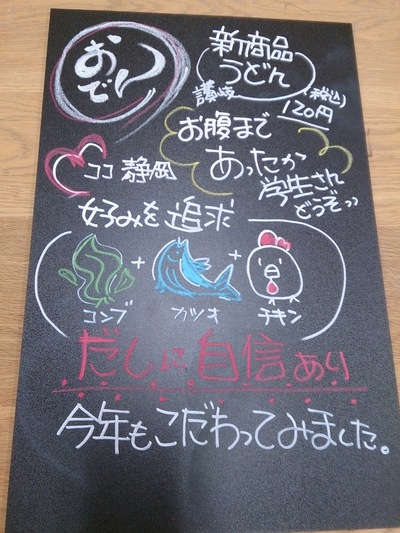 おでん
新商品
うどん
讃岐
(税込)
120円
お腹まで
あったか
学生さん
どうぞッ
ココ静岡
好みを追求
コンブ + カツオ + チキン
だしに自信あり
今年もこだわってみました。